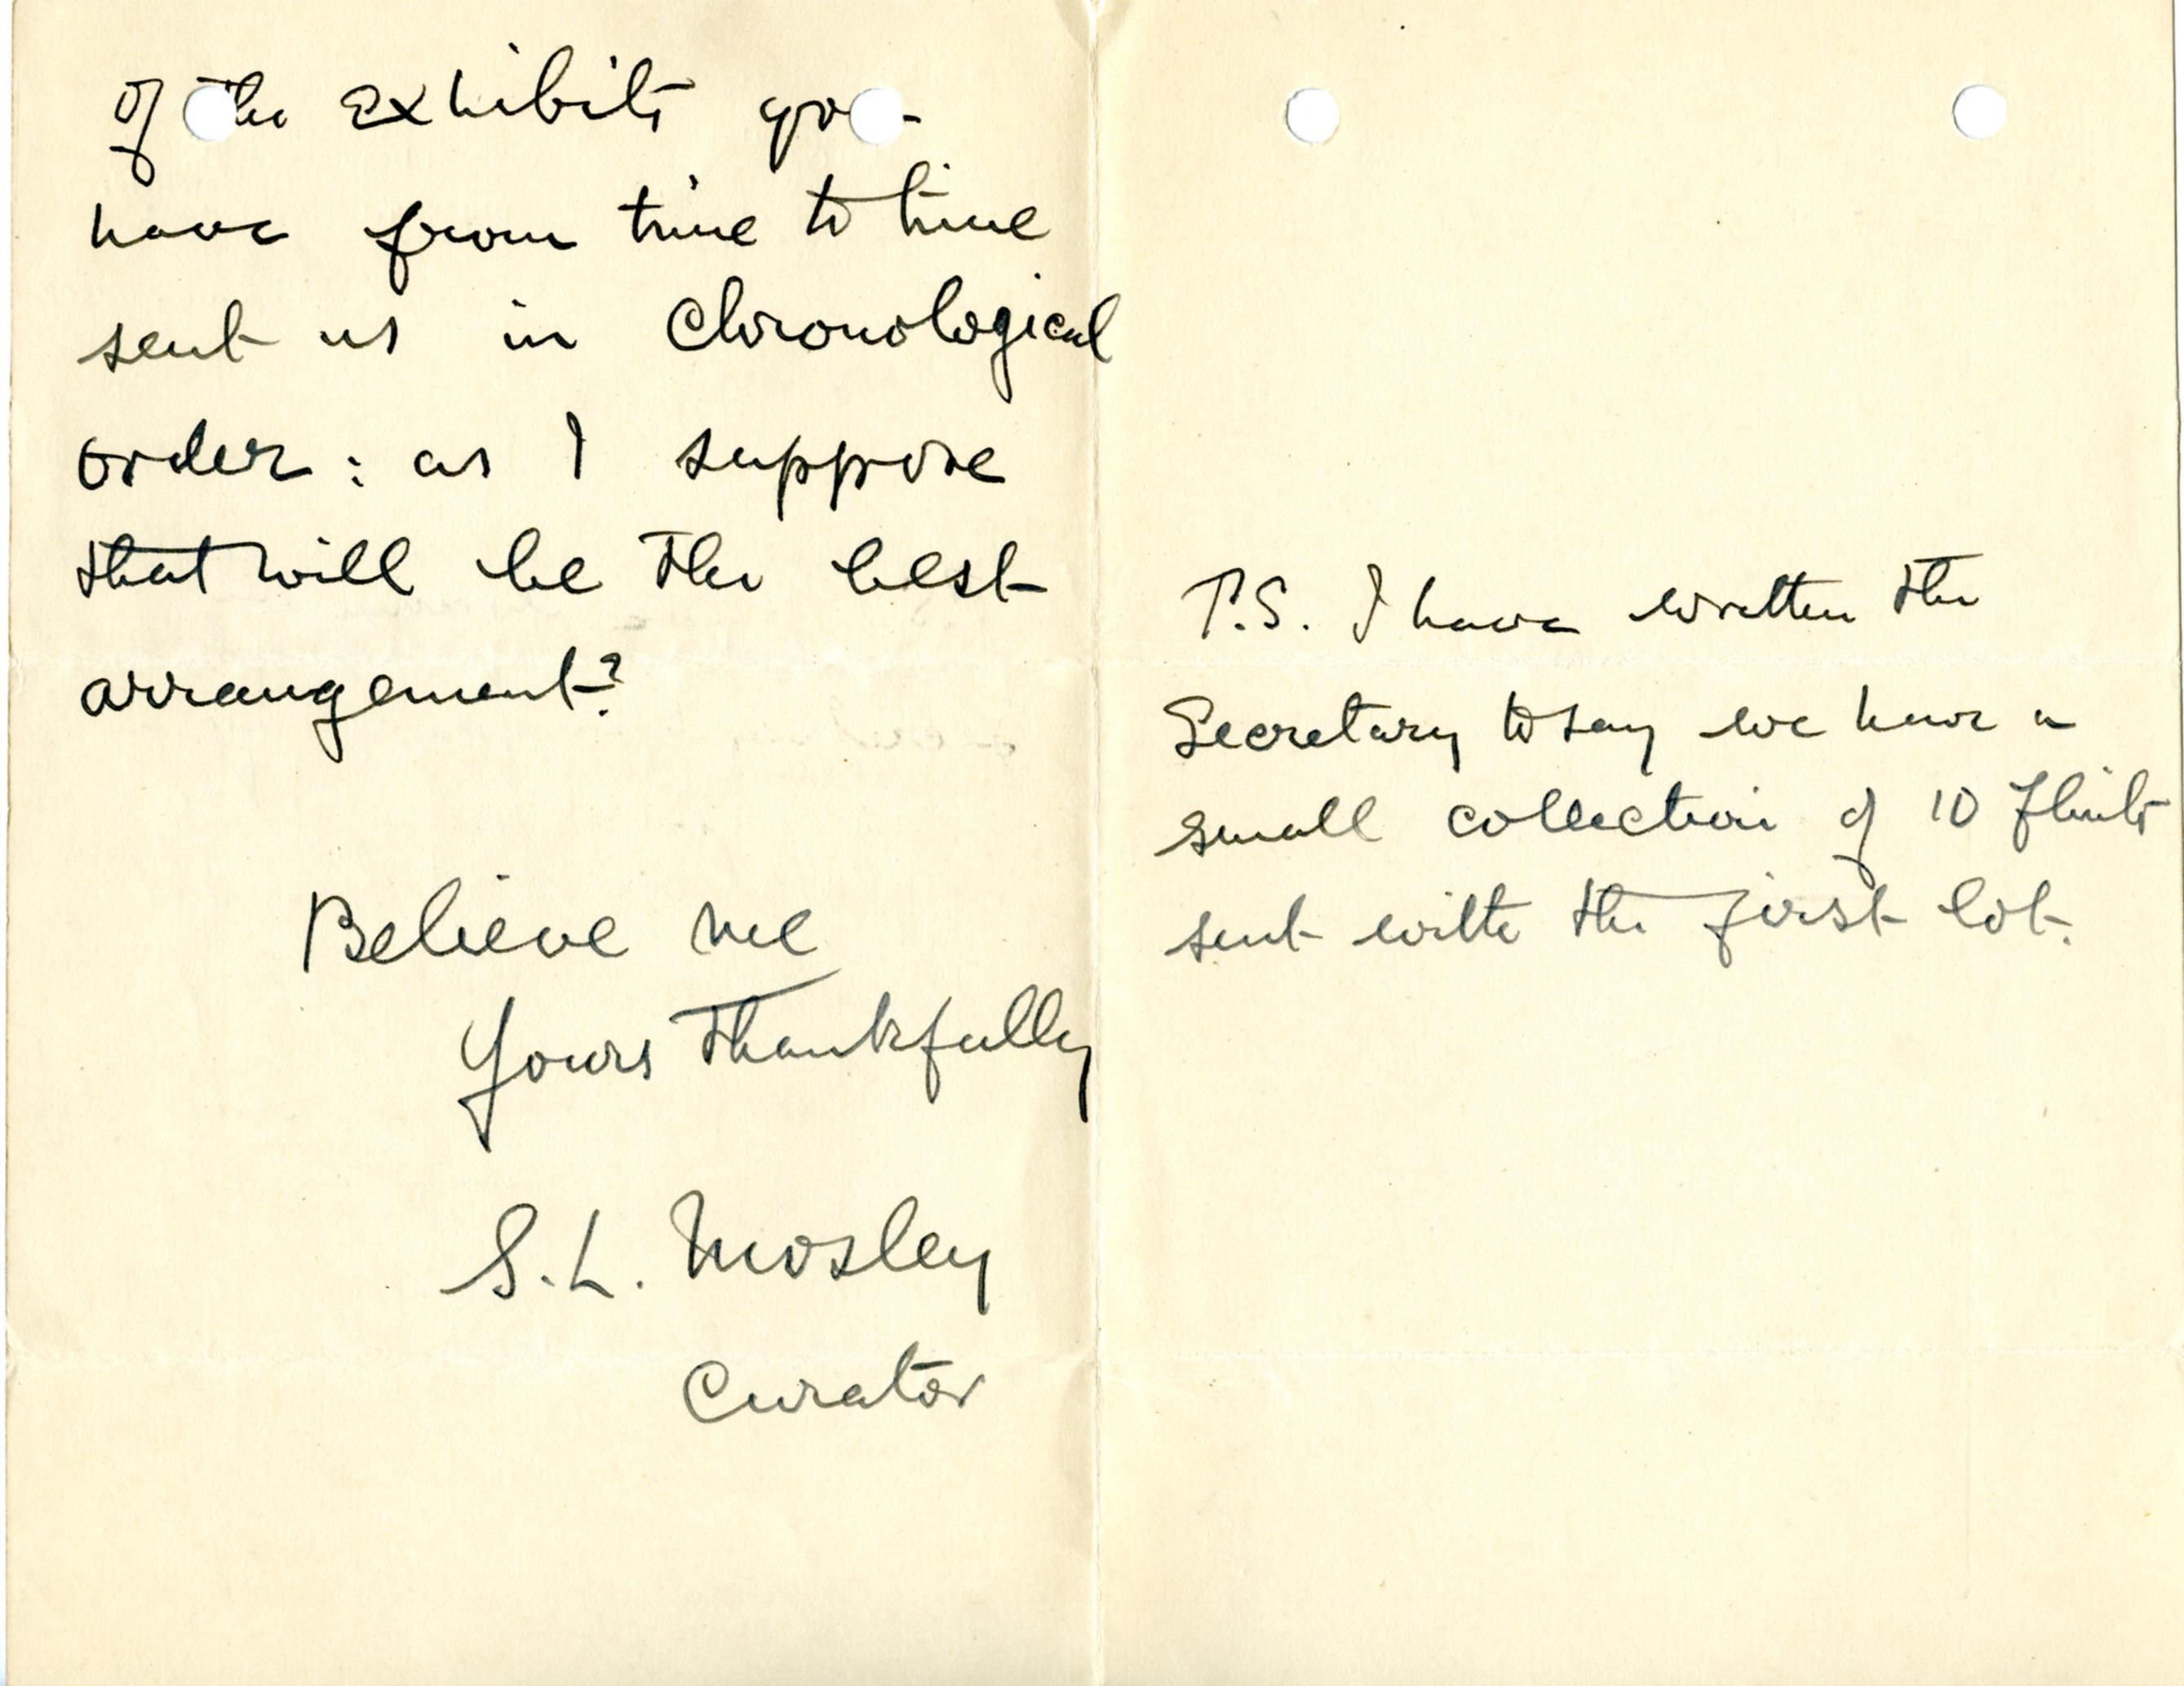 of the Exhibits you
have from time to time
sent us in Chronological
order : as I suppose
that will be the best
arrangement?
Believe me
Yours Thankfully
S. L. Mosley
Curator
P.S. I have written the
Secretary to say we have a
small collection of 10 flints
sent with the first lot.